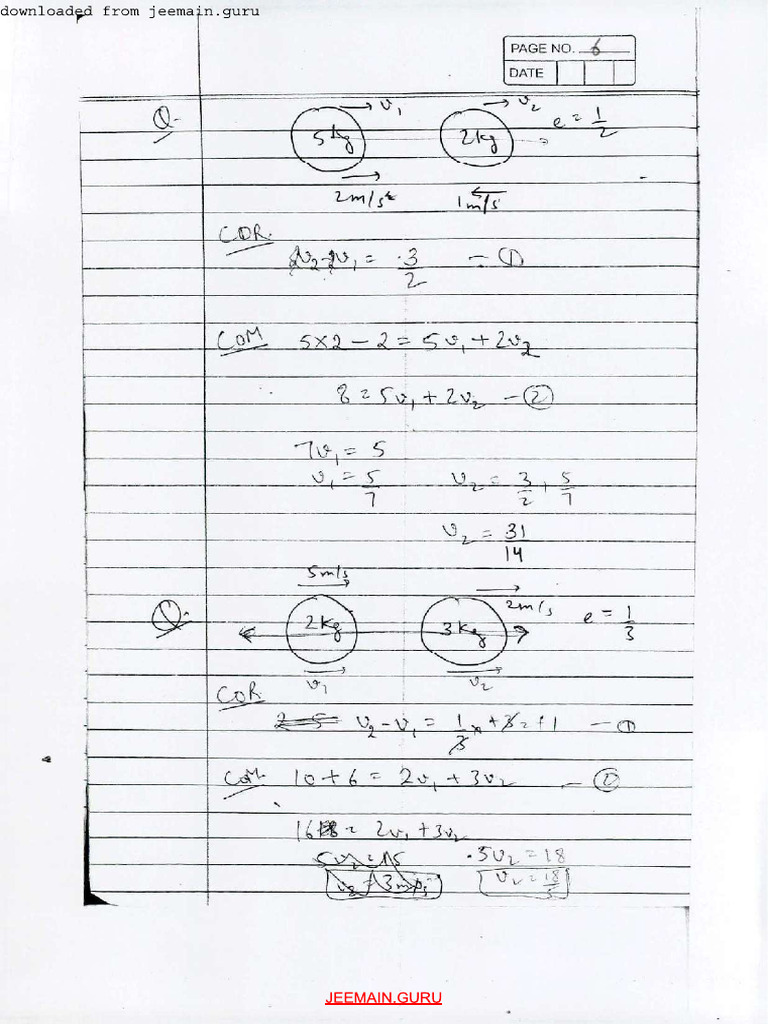 downloaded from jeemain.guru
PAGE NO. 6
DATE
Q.
v₁
v₂
5kg
2kg
e = 1/2
2m/s
1m/s
COR.
v₂ - v₁ = 3/2 — ①
COM 5×2 - 2 = 5v₁ + 2v₂
8 = 5v₁ + 2v₂ — ②
7v₁ = 5
v₁ = 5/7 v₂ = 3/2 + 5/7
v₂ = 31/14
5m/s
Q.
2kg
3kg
2m/s
e = 1/3
v₁
v₂
COR.
2-5 v₂ - v₁ = 1/3 × +3 = +1 — ①
COM. 10 + 6 = 2v₁ + 3v₂ — ②
16 = 2v₁ + 3v₂
5v₂ = 15 5v₂ = 18
v₂ = 3m/s v₂ = 18/5
JEEMAIN.GURU